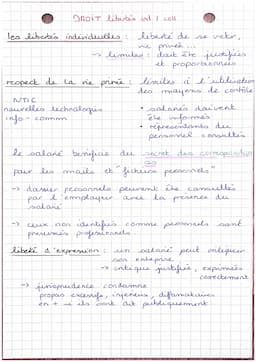 DROIT libertés ind / coll
les libertés individuelles : liberté de se vetir,
vie privée ...
→ limites : doit être justifiées
et proportionnées
respect de la vie privée : limites à l'utilisation
des moyens de contrôle
NTIC
nouvelles technologies
info - comm
• salariés doivent
être informés
• représentants du
personnel consultés
le salarié bénéficie du secret des correspondances
pour les mails et "fichiers personnels"
→ dossier personnels peuvent être consultés
par l'employeur avec la présence du
salarié
→ ceux non identifiés comme personnels sont
présumés professionnels
liberté d'expression : un salarié peut critiquer
son entreprise
→ critique justifiée, exprimées
correctement
→ jurisprudence condamne
propos excessifs, injurieux, diffamatoires
en + si ils sont dit publiquement